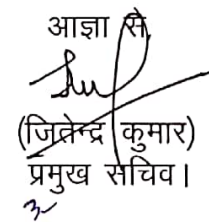 आज्ञा से,
(जितेन्द्र कुमार)
प्रमुख सचिव।